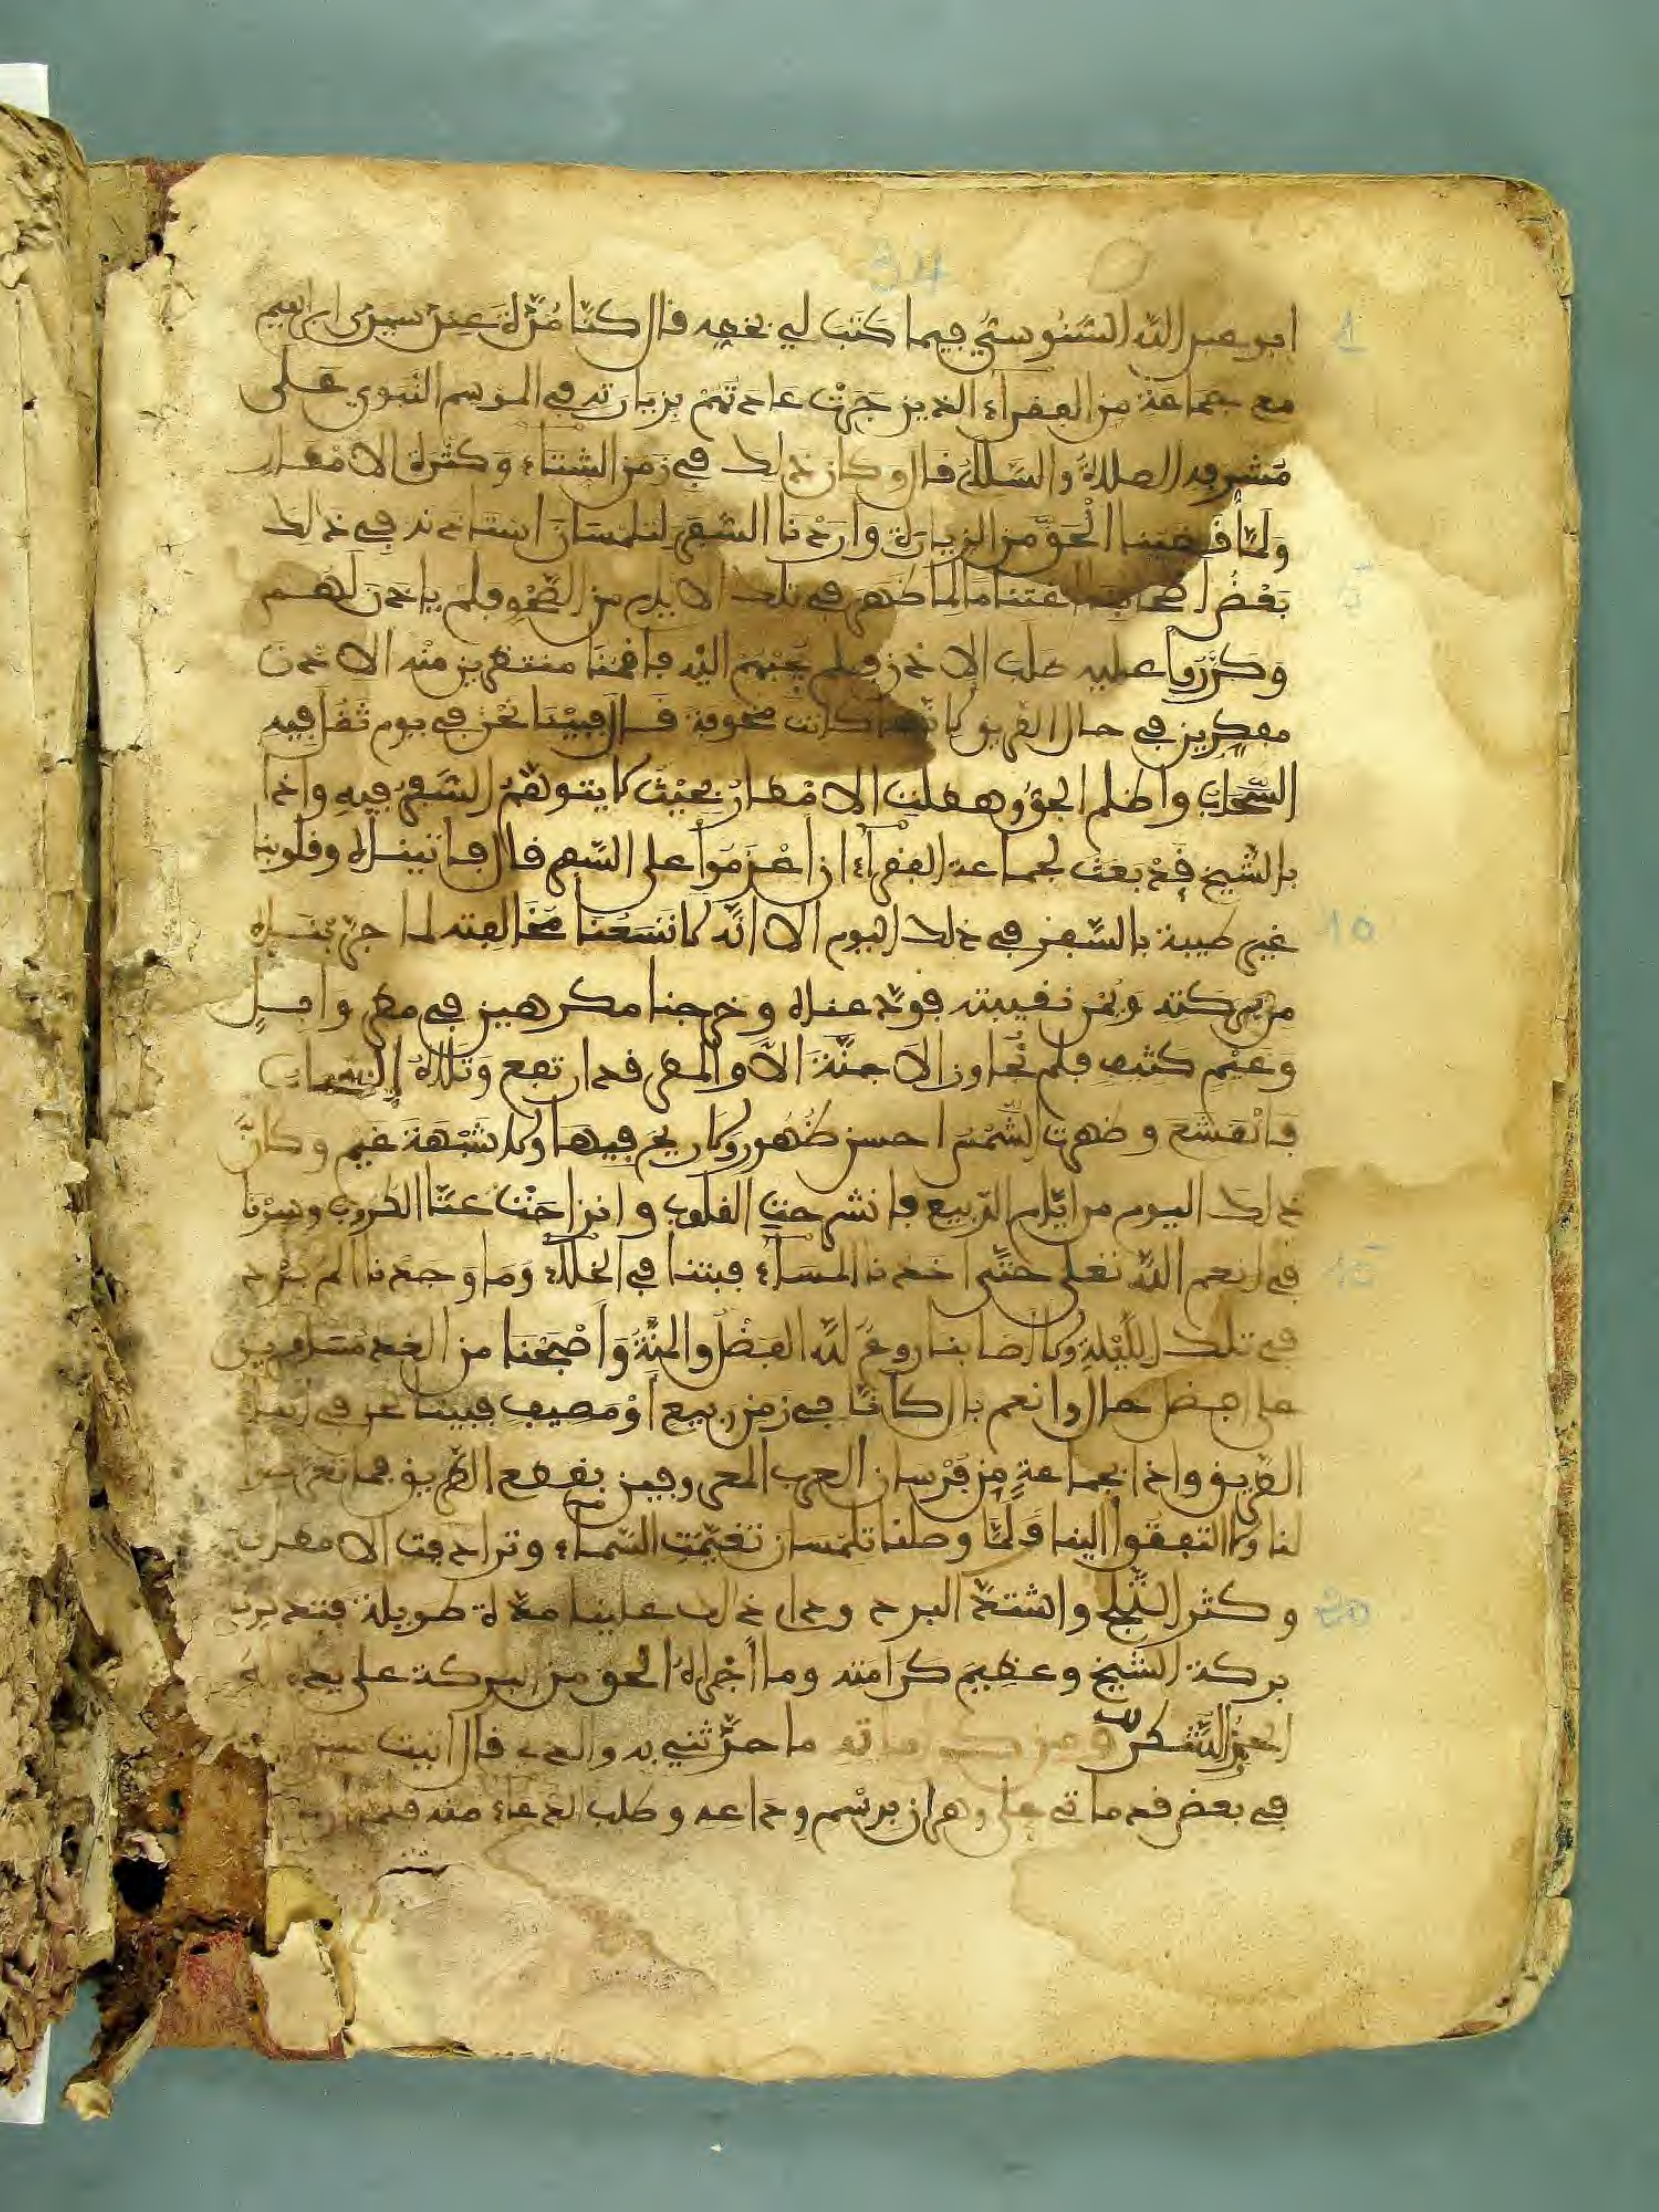 94
1 ابو عبد الله السَّنُوسيُّ فيما كَتَبَ لي بخطه قال كنّا مُدَّة عِند سيدي ابراهيم
مع جماعة من الفقراء الذين جَرَتْ عادتهُمْ بزيارته في الموسم النَّبَوي على
مُشرفه الصلاةُ والسَّلامُ قال وكان ذلك في زَمَن الشتاء وكثرة الامطار
ولمّا قضينا الحَقَّ من الزيارة واردْنا السَّفَر لتلمسان استاذنه في ذلك
5 بَعْضُ اصحابنا لما ظهر في تلك الايام من الصَّحْو فلم ياذن لهم
وكرَّروا عليه طلب الاذن فلم يجبهم اليه فاقمنا منتظرين منه الاذن
مفكرين في حال الطريق لانّها كانت مخوفة قال فبيْنا نحْن في يوم ثَقُل فيه
السَّحاب واظلم الجوُّ وهطلت الامطار بحيْث لا يتوهّمُ السَّفرُ فيه واذا
بالشّيخ قدْ بَعَث لجماعة الفقراء ان اعْزموا على السَّفر قال فاتيناه وقلوبنا
10 غير طيبة بالسَّفر في ذلك اليوم الا انّه لا تسَعُنا مخالفته لما جرّبْناه
من بركته ويُمْن نقيبته فودّعناه وخرجنا مكرهين في مطر وابلٍ
وغيْمٍ كثيف فلم نُجاوز الاجنّة الاّ والمطر قد ارتفع وتلاهُ السَّحاب
فانْقشَعَ وظهرت الشّمْسُ احسن ظُهور ولا ريح فيها ولا شَبْهَة غيم وكانَّ
ذلك اليوم من ايّام الرّبيع فانشرحت القلوب وانزاحَتْ عنّا الكروب وسِرْنا
15 في انعم الله تعلى حتّى اخذنا المسَاءُ فبتنا في الخلاء وما وجدنا الم برْد
في تلك اللّيْلةِ ولا اصابنا روع لله الفضْل والمنّةُ واصْبَحْنا من الغد مسافرين
على افضل حال وانعم بال كانّا في زمن ربيع اوْ مصيف فبينا نحن في اثناء
الطريق واذا بجماعةٍ مِن فرْسان العرب المعروفين بقطع الطريق فما تعرضوا
لنا ولا التفتُوا الينا ولمّا وصلنا تلمسان تغيّمَت السّماء وترادفت الامطار
20 وكثر الثّلج واشتدّ البرد ودام ذلك علينا مدّة طويلة فتعد
بركة الشّيخ وعظيمَ كرامته وما أجْراهُ الحق من البركة على يديه
الحمْدُ والشّكر ومن كراماته ما حدّثني به والدي قال اتيت
في بعض قدماتي على وهران برسْم وداعه وطلب الدعاء منه